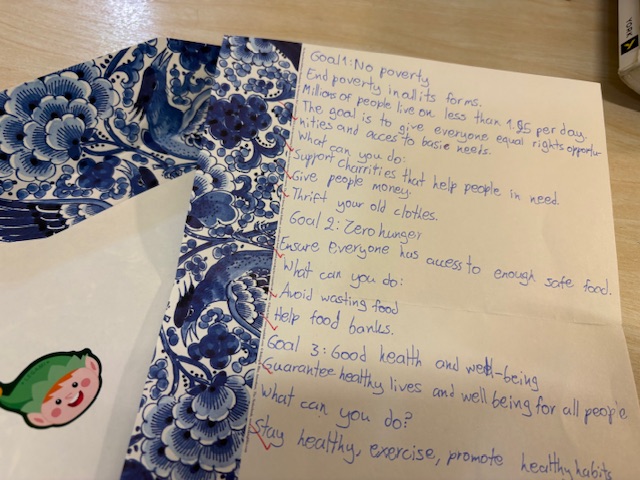 Goal 1: No poverty
End poverty in all its forms.
Millions of people live on less than 1.95 per day.
The goal is to give everyone equal rights opportu-
nities and acces to basic needs.
What can you do:
Support charrities that help people in need.
Give people money.
Thrift your old cloties.
Goal 2: Zero hunger
Ensure everyone has access to enough safe food.
What can you do:
Avoid wasting food
Help food banks.
Goal 3: Good health and well-being
Guarantee healthy lives and well being for all people
What can you do?
Stay healthy, exercise, promote healthy habits